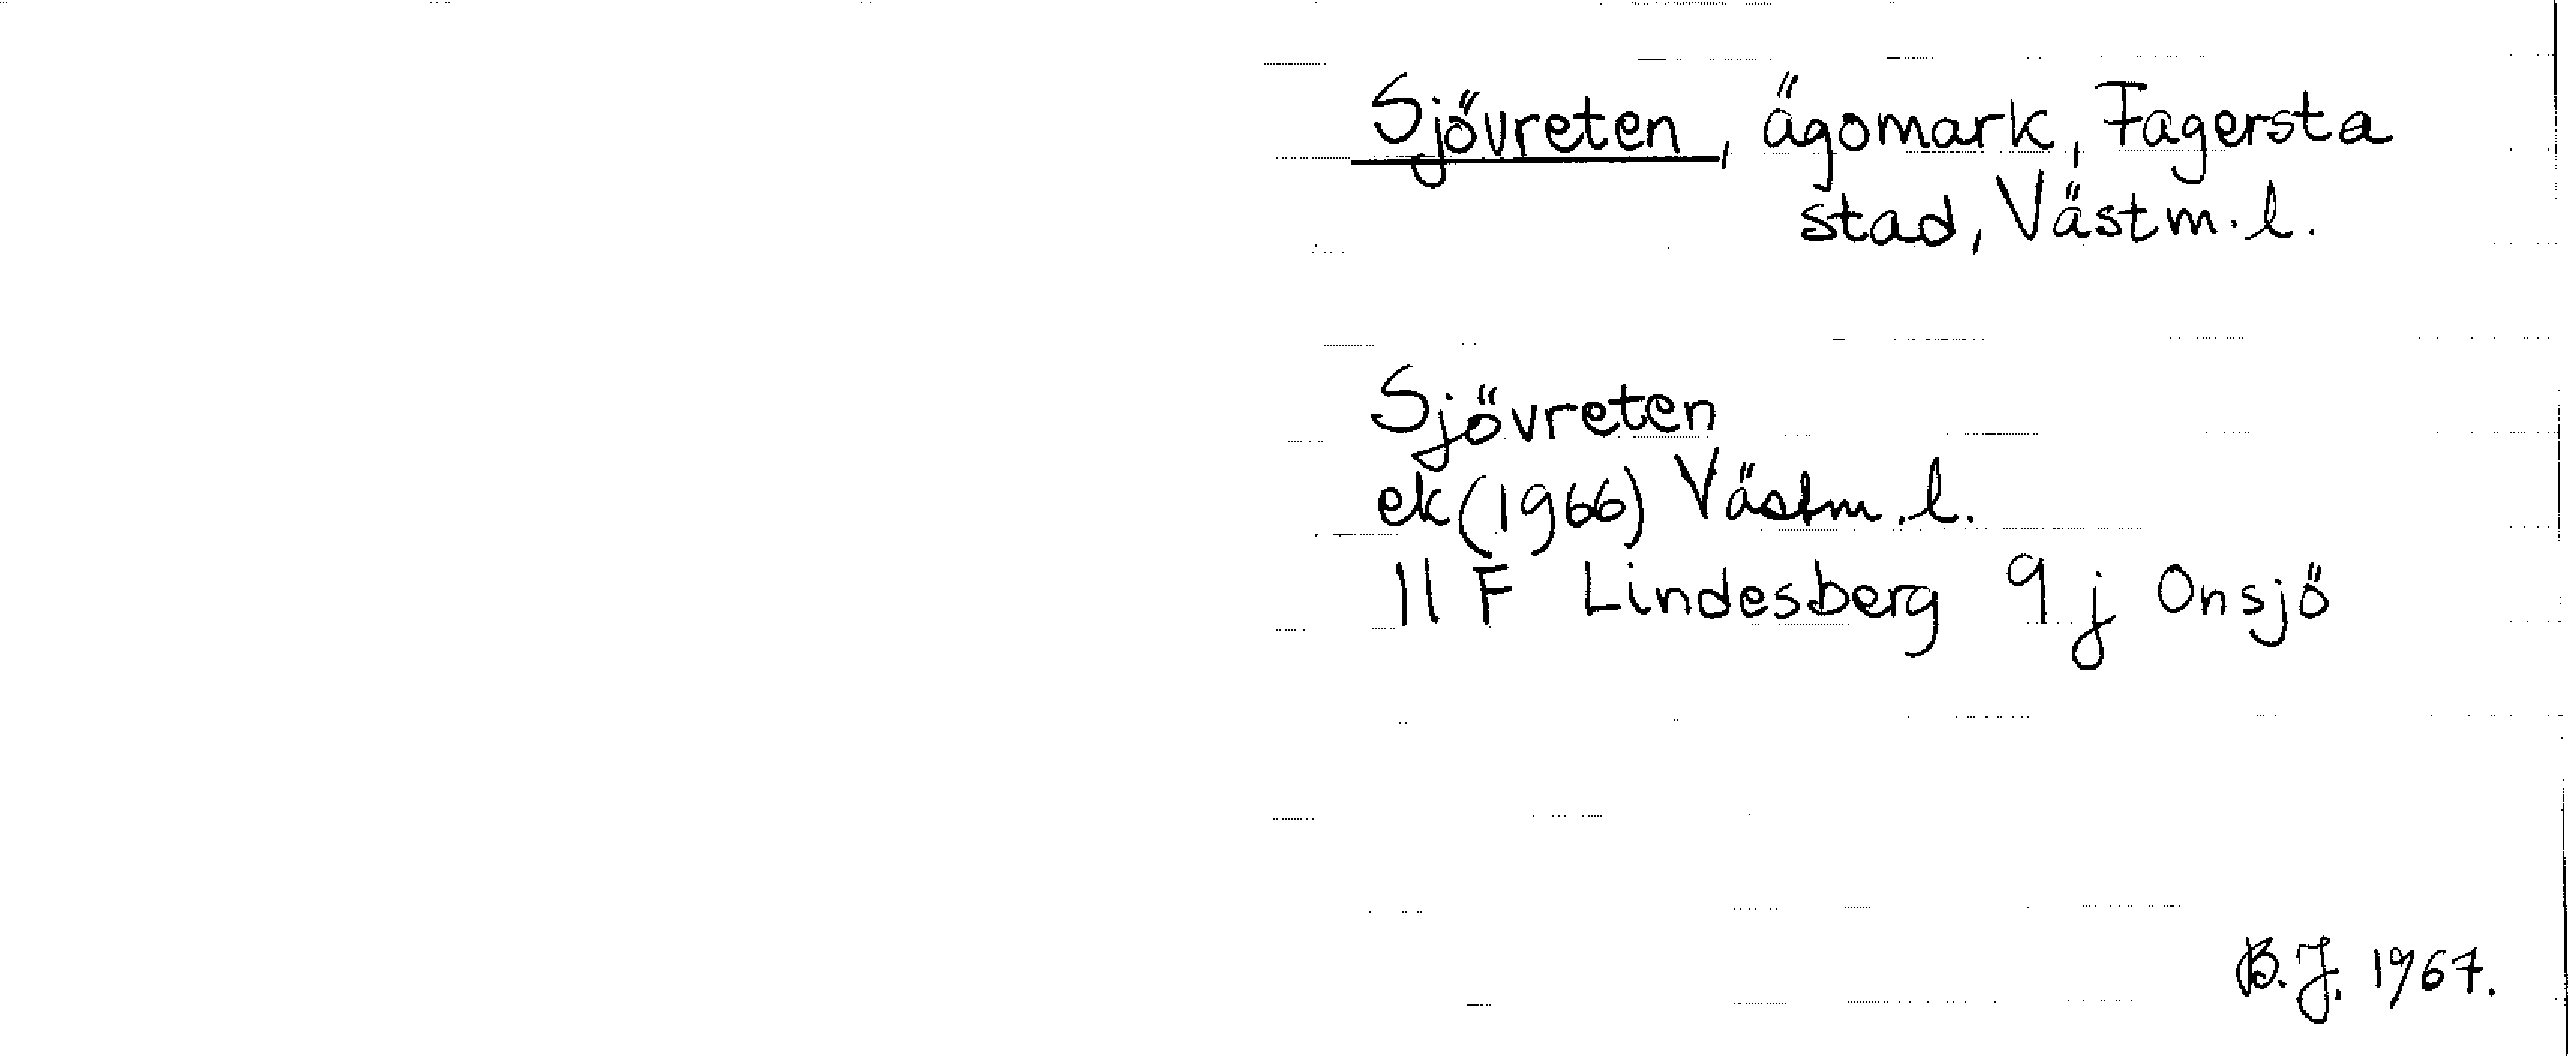 Sjövreten, ägomark, Fagersta
stad, Västm.l.
Sjövreten
ek (1966) Västm.l.
11 F Lindesberg 9 j Onsjö
B.J. 1967.